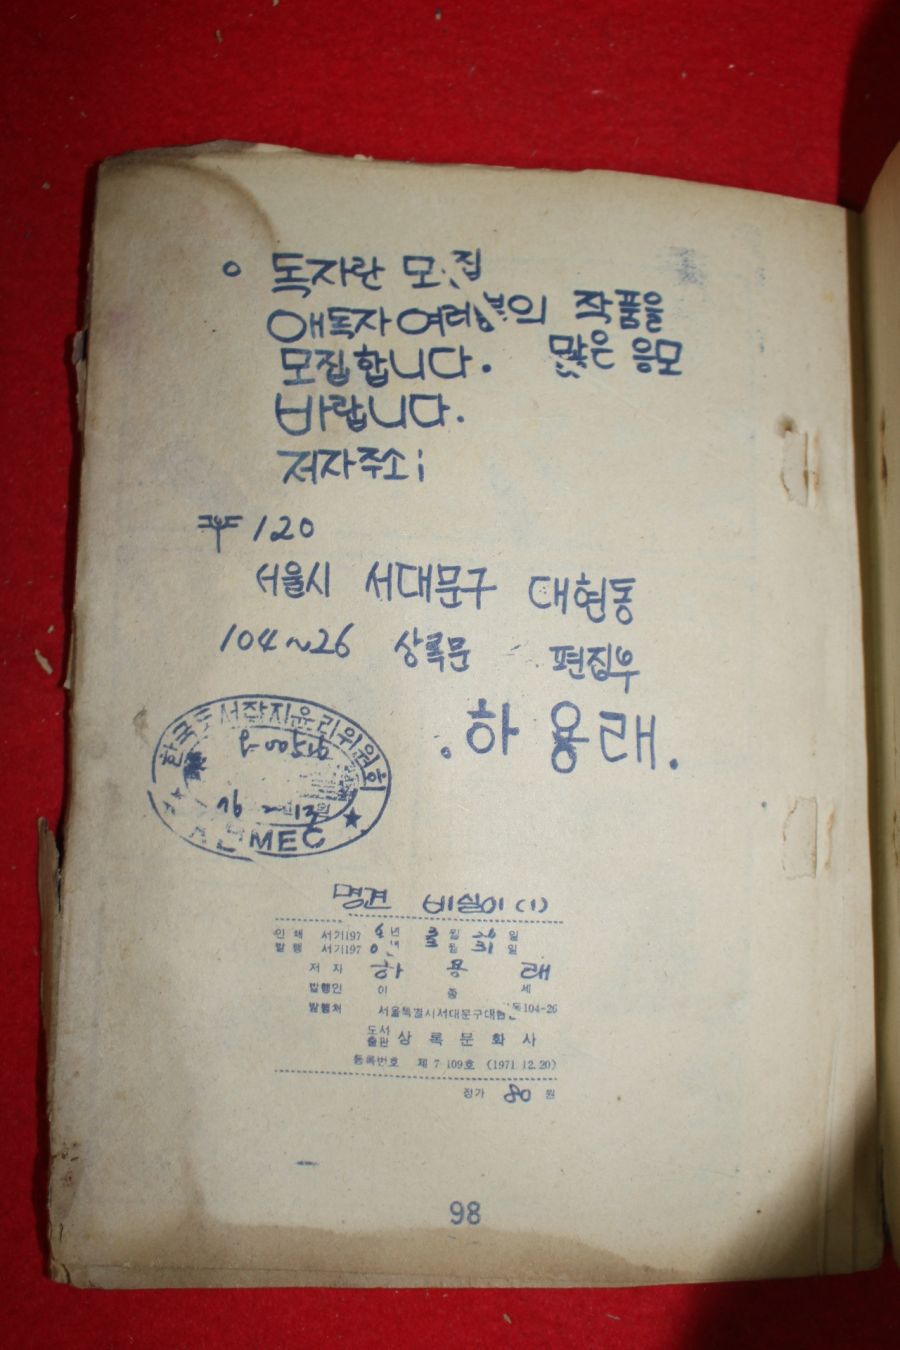 ○ 독자란 모집
애독자 여러분의 작품을
모집합니다. 많은 응모
바랍니다.
저자주소;
우 120
서울시 서대문구 대현동
104~26 상록문 편집부
.하 용래.
한국도서잡지윤리위원회
명견 비실이 (1)
인쇄 서기197 년 월 26 일
발행 서기197 년 월 31 일
저자 하 용 래
발행인 이 종 세
발행처 서울특별시서대문구대현동104-26
도서출판 상록문화사
등록번호 제 7-109호 (1971 12.20)
정가 80 원
98